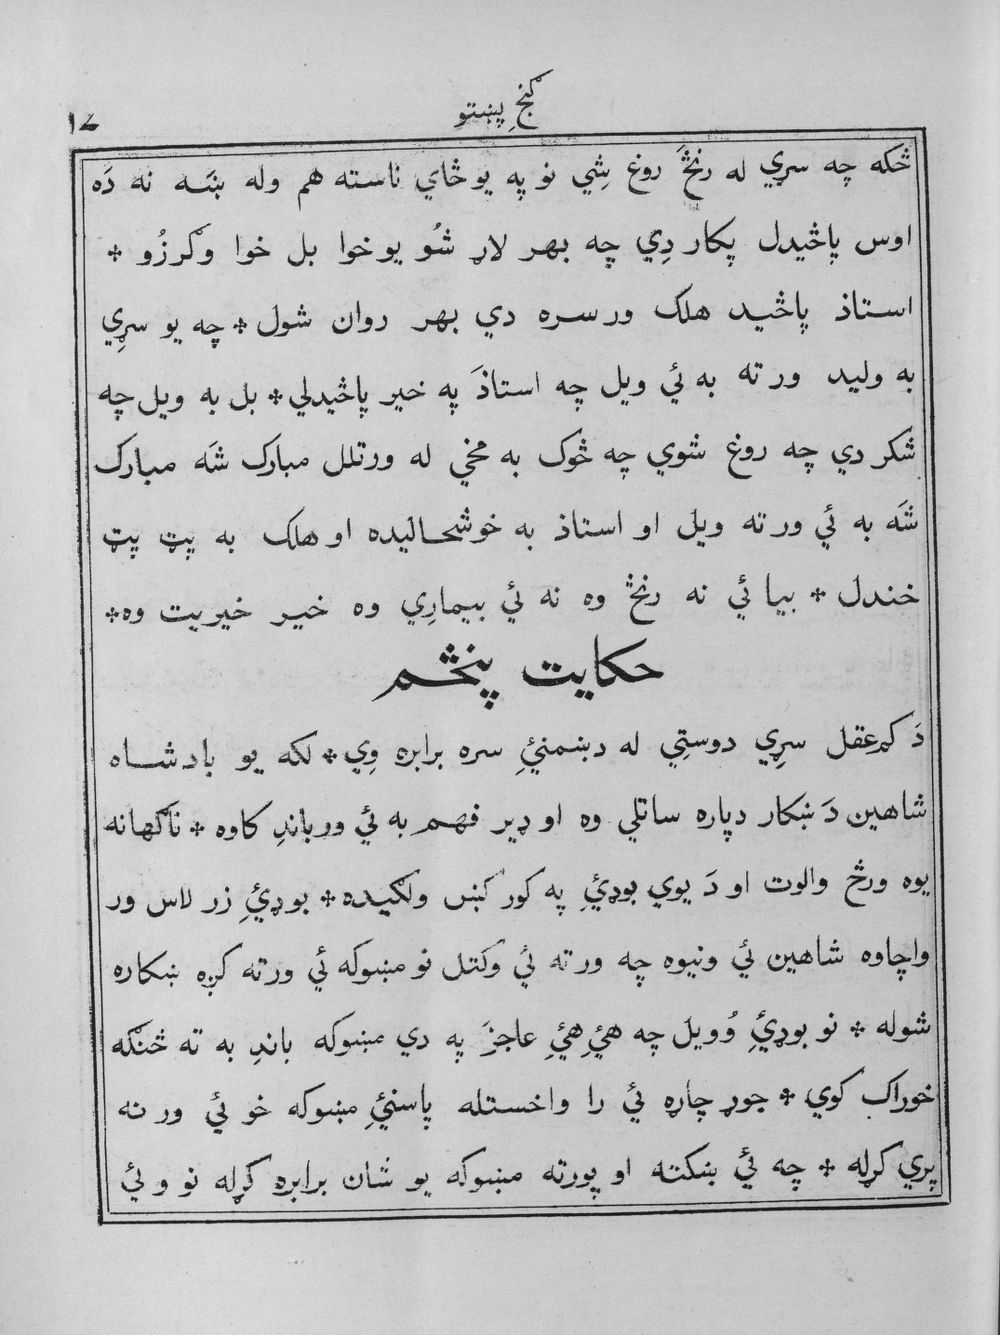 گنجِ پښتو
١٧
څکه چه سړي له رنځَ روغ شِي نو په يو ځاي ناسته هم وله ښَه نه دَه
اوس پاڅيدل پکار دِي چه بهر لاړ شُو يو خوا بل خوا وګرزُو *
استاذ پاڅيد هلک ورسره دي بهر روان شول * چه يو سړِي
به وليد ورته به ئي ويل چه استاذَ په خير پاڅيدلي * بل به ويل چه
شکر دي چه روغ شوي چه څوک به مخي له ورتلل مبارک شَه مبارک
شَه به ئي ورته ويل او استاذ به خوشحاليده او هلک به پټ پټ
خندل * بيا ئي نه رنځ وه نه ئي بيمارِي وه خير خيريت وه *
حکايت پنځم
دَ کم عقل سړِي دوستِي له دښمنئِ سره برابره وِي * لکه يو بادشاه
شاهين دَ ښکار دپاره ساتلي وه او ډير فهم به ئي ورباندِ کاوه * ناګهانه
يوه ورځ والوت او دَ يوي بوډئِ په کور کښِ ولګيده * بوډئِ زر لاس ور
واچاوه شاهين ئي ونيوه چه ورته ئي وکتل نو مښوکه ئي ورته کږه ښکاره
شوله * نو بوډئِ وُويل چه هئِ هئِ عاجزَ په دي مښوکه باندِ به ته څنګه
خوراک کوي * جوړ چاړه ئي را واخستله پاسنئِ مښوکه خو ئي ورنه
پري کړله * چه ئي ښکته او پورته مښوکه يو شان برابره کړله نو و ئي